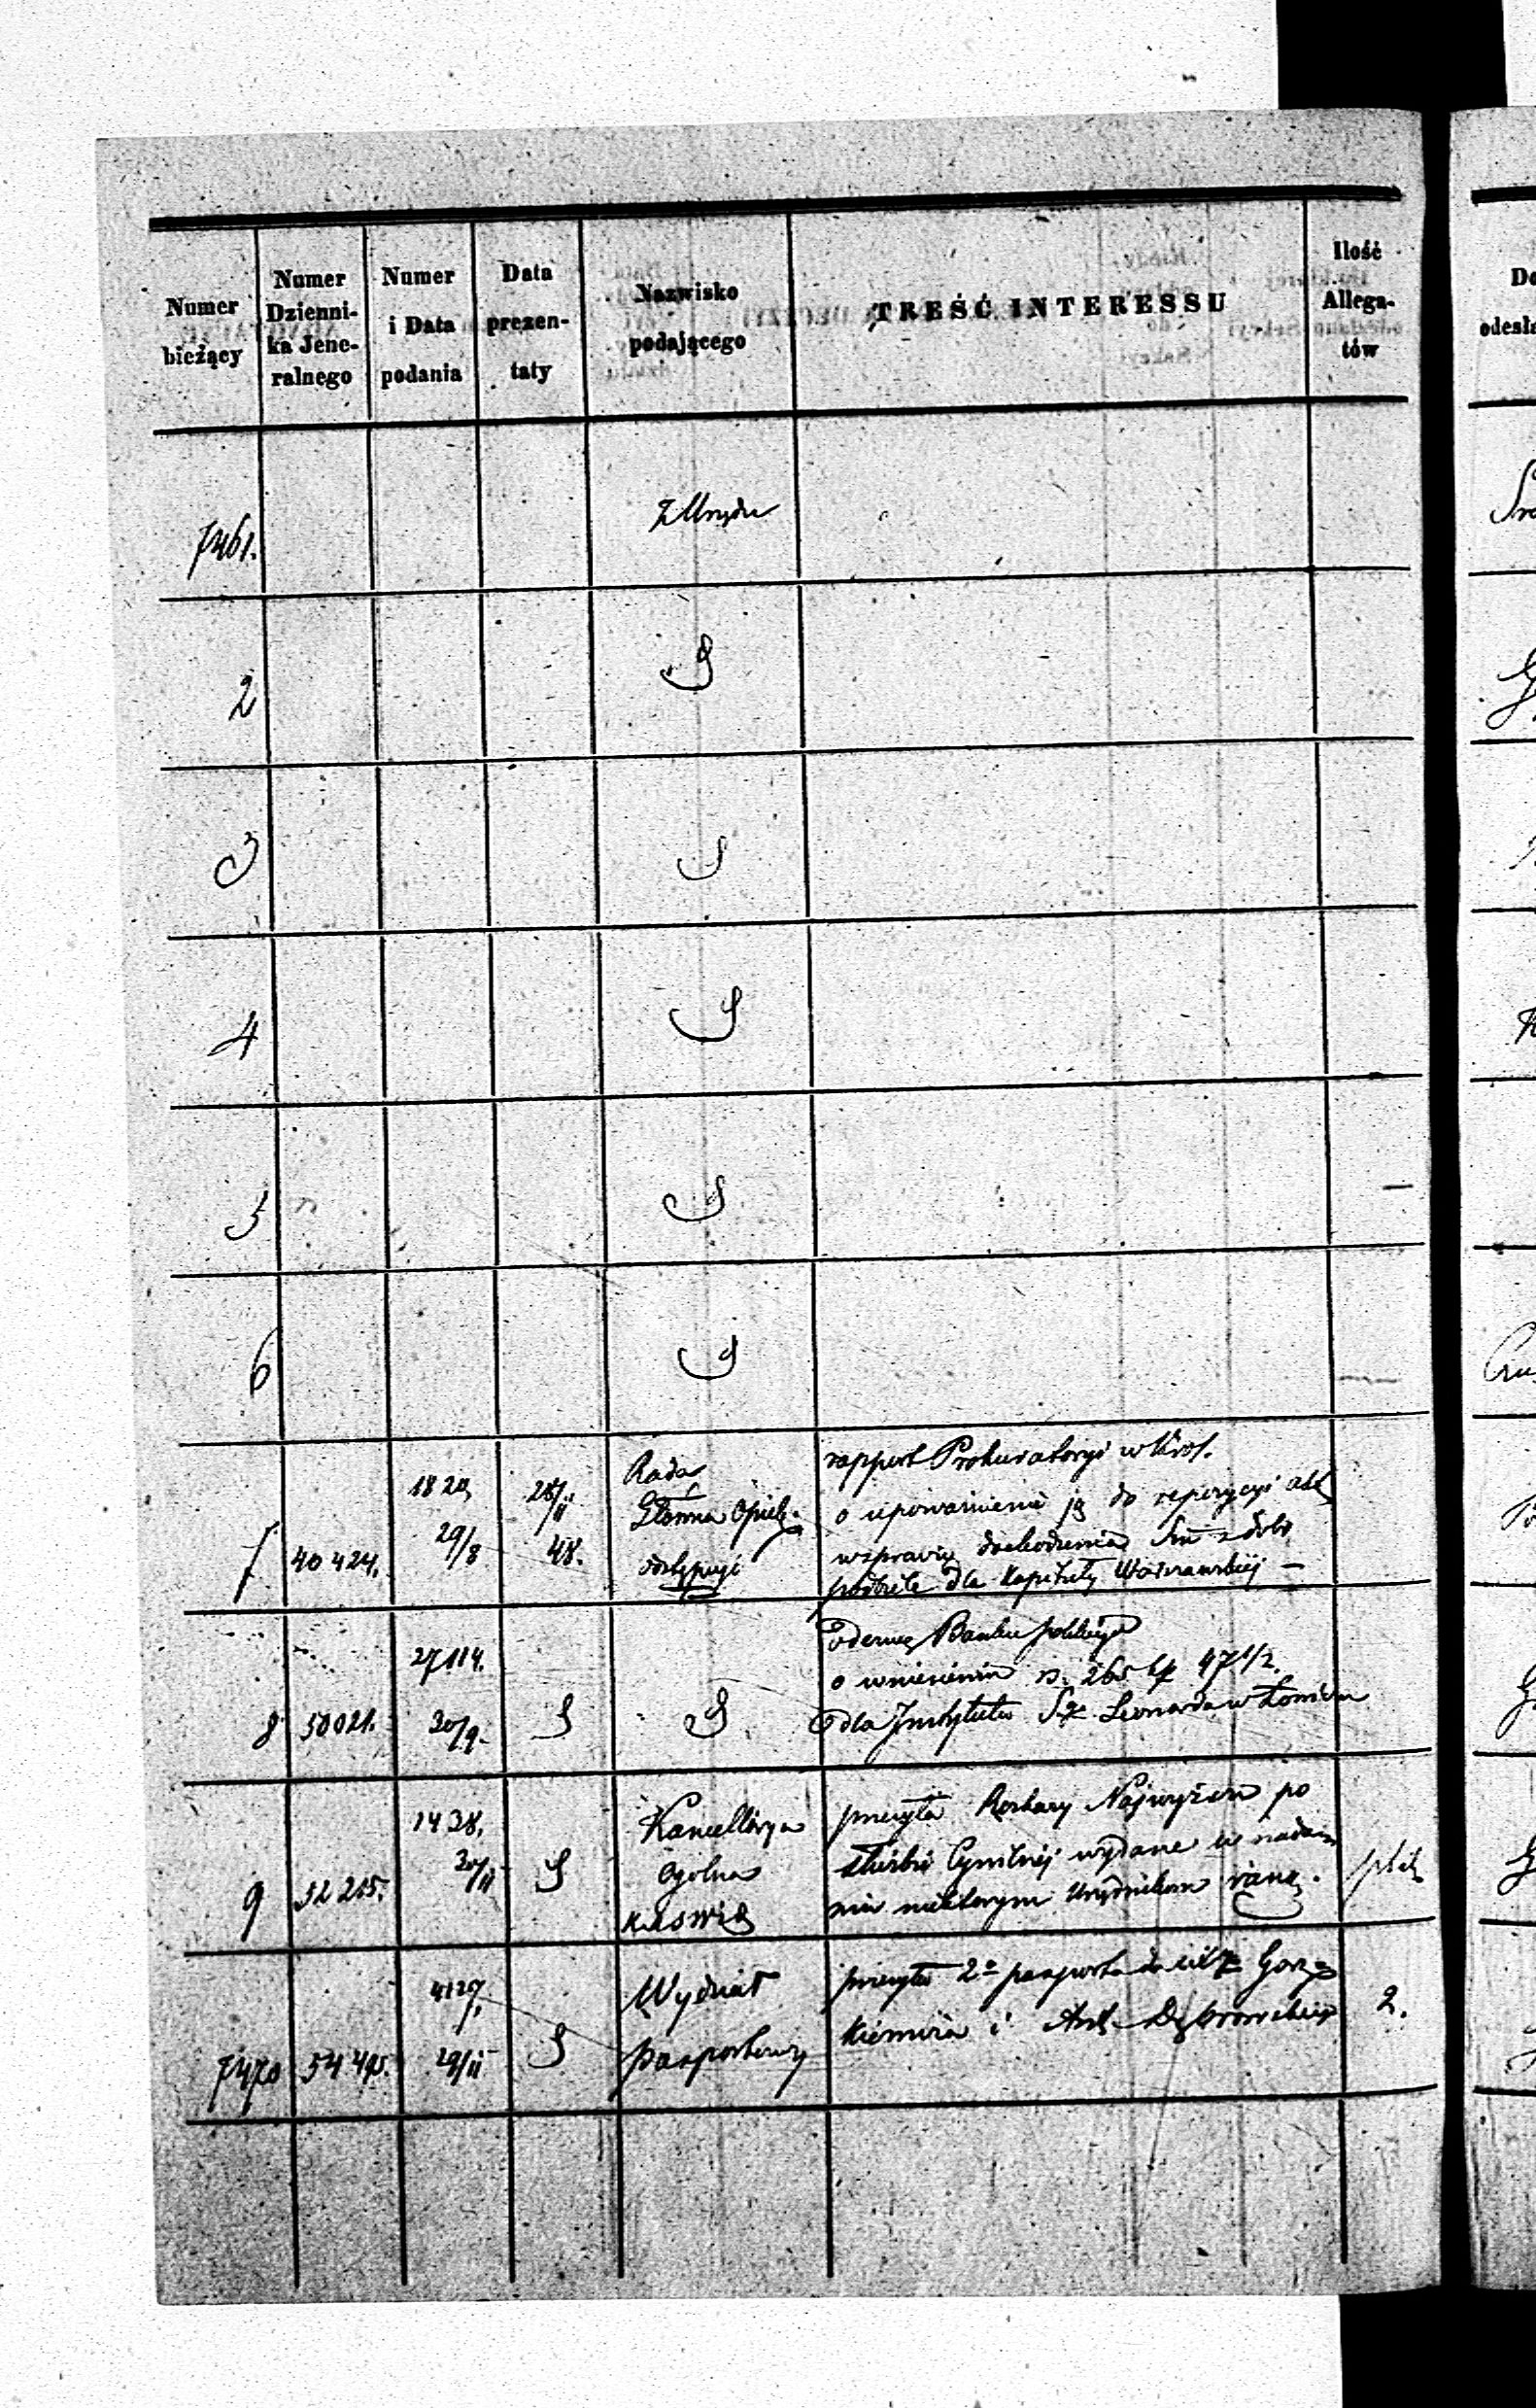 Numer bieżący
Numer Dzienni- ka Jene- ralnego
Numer i Data podania
Data prezen- taty
Nazwisko podającego
TREŚĆ INTERESSU
Ilość Allega- tów
7461.
Z Urzędu
2
3
4
5
6
7
40424.
1820,
29/8
28/11
48.
Rada
Główna Opiek.
odstępuje
rapport Prokuratoryi w Król.
o upoważnienie ją do
dochodzenia
dla Kapituły Warszawskiej —
8
50021.
27114.
30/9.
odezwę Banku polskiego
o wniesienia rs. 265 kp 47 1/2.
dla Instytutu Sgo Leonarda w
9
52215.
1438,
30/11
Kancellarya
Ogólna
KRSWiD
przesyła Rozkazy Najwyższe po
służbie Cywilnéj wydane w nada-
niu niektórym Urzędnikom rang.
7470
54495.
4127,
29/11
Wydział
Pasportowy
przesyła 2a pasporta dla
i Ant. Dąbrowskiego
2.